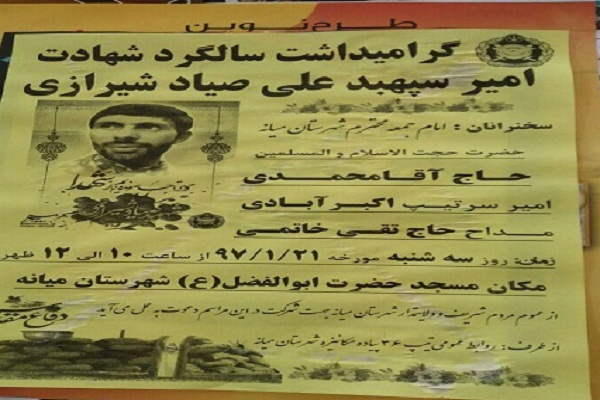 طرح نوین
گرامیداشت سالگرد شهادت
امیر سپهبد علی صیاد شیرازی
سخنرانان : امام جمعه محترم شهرستان میانه
حضرت حجت الاسلام و المسلمین
حاج آقامحمدی
امیر سرتیپ اکبرآبادی
مداح حاج تقی خاتمی
زمان: روز سه شنبه مورخه ۹۷/۱/۲۱ از ساعت ۱۰ الی ۱۲ ظهر
مکان مسجد حضرت ابوالفضل(ع) شهرستان میانه
از عموم مردم شریف و ولایتمدار شهرستان میانه جهت شرکت در این مراسم دعوت به عمل می آید
از طرف: روابط عمومی تیپ ۳۶ پیاده مکانیزه شهرستان میانه
دفاع مقدس